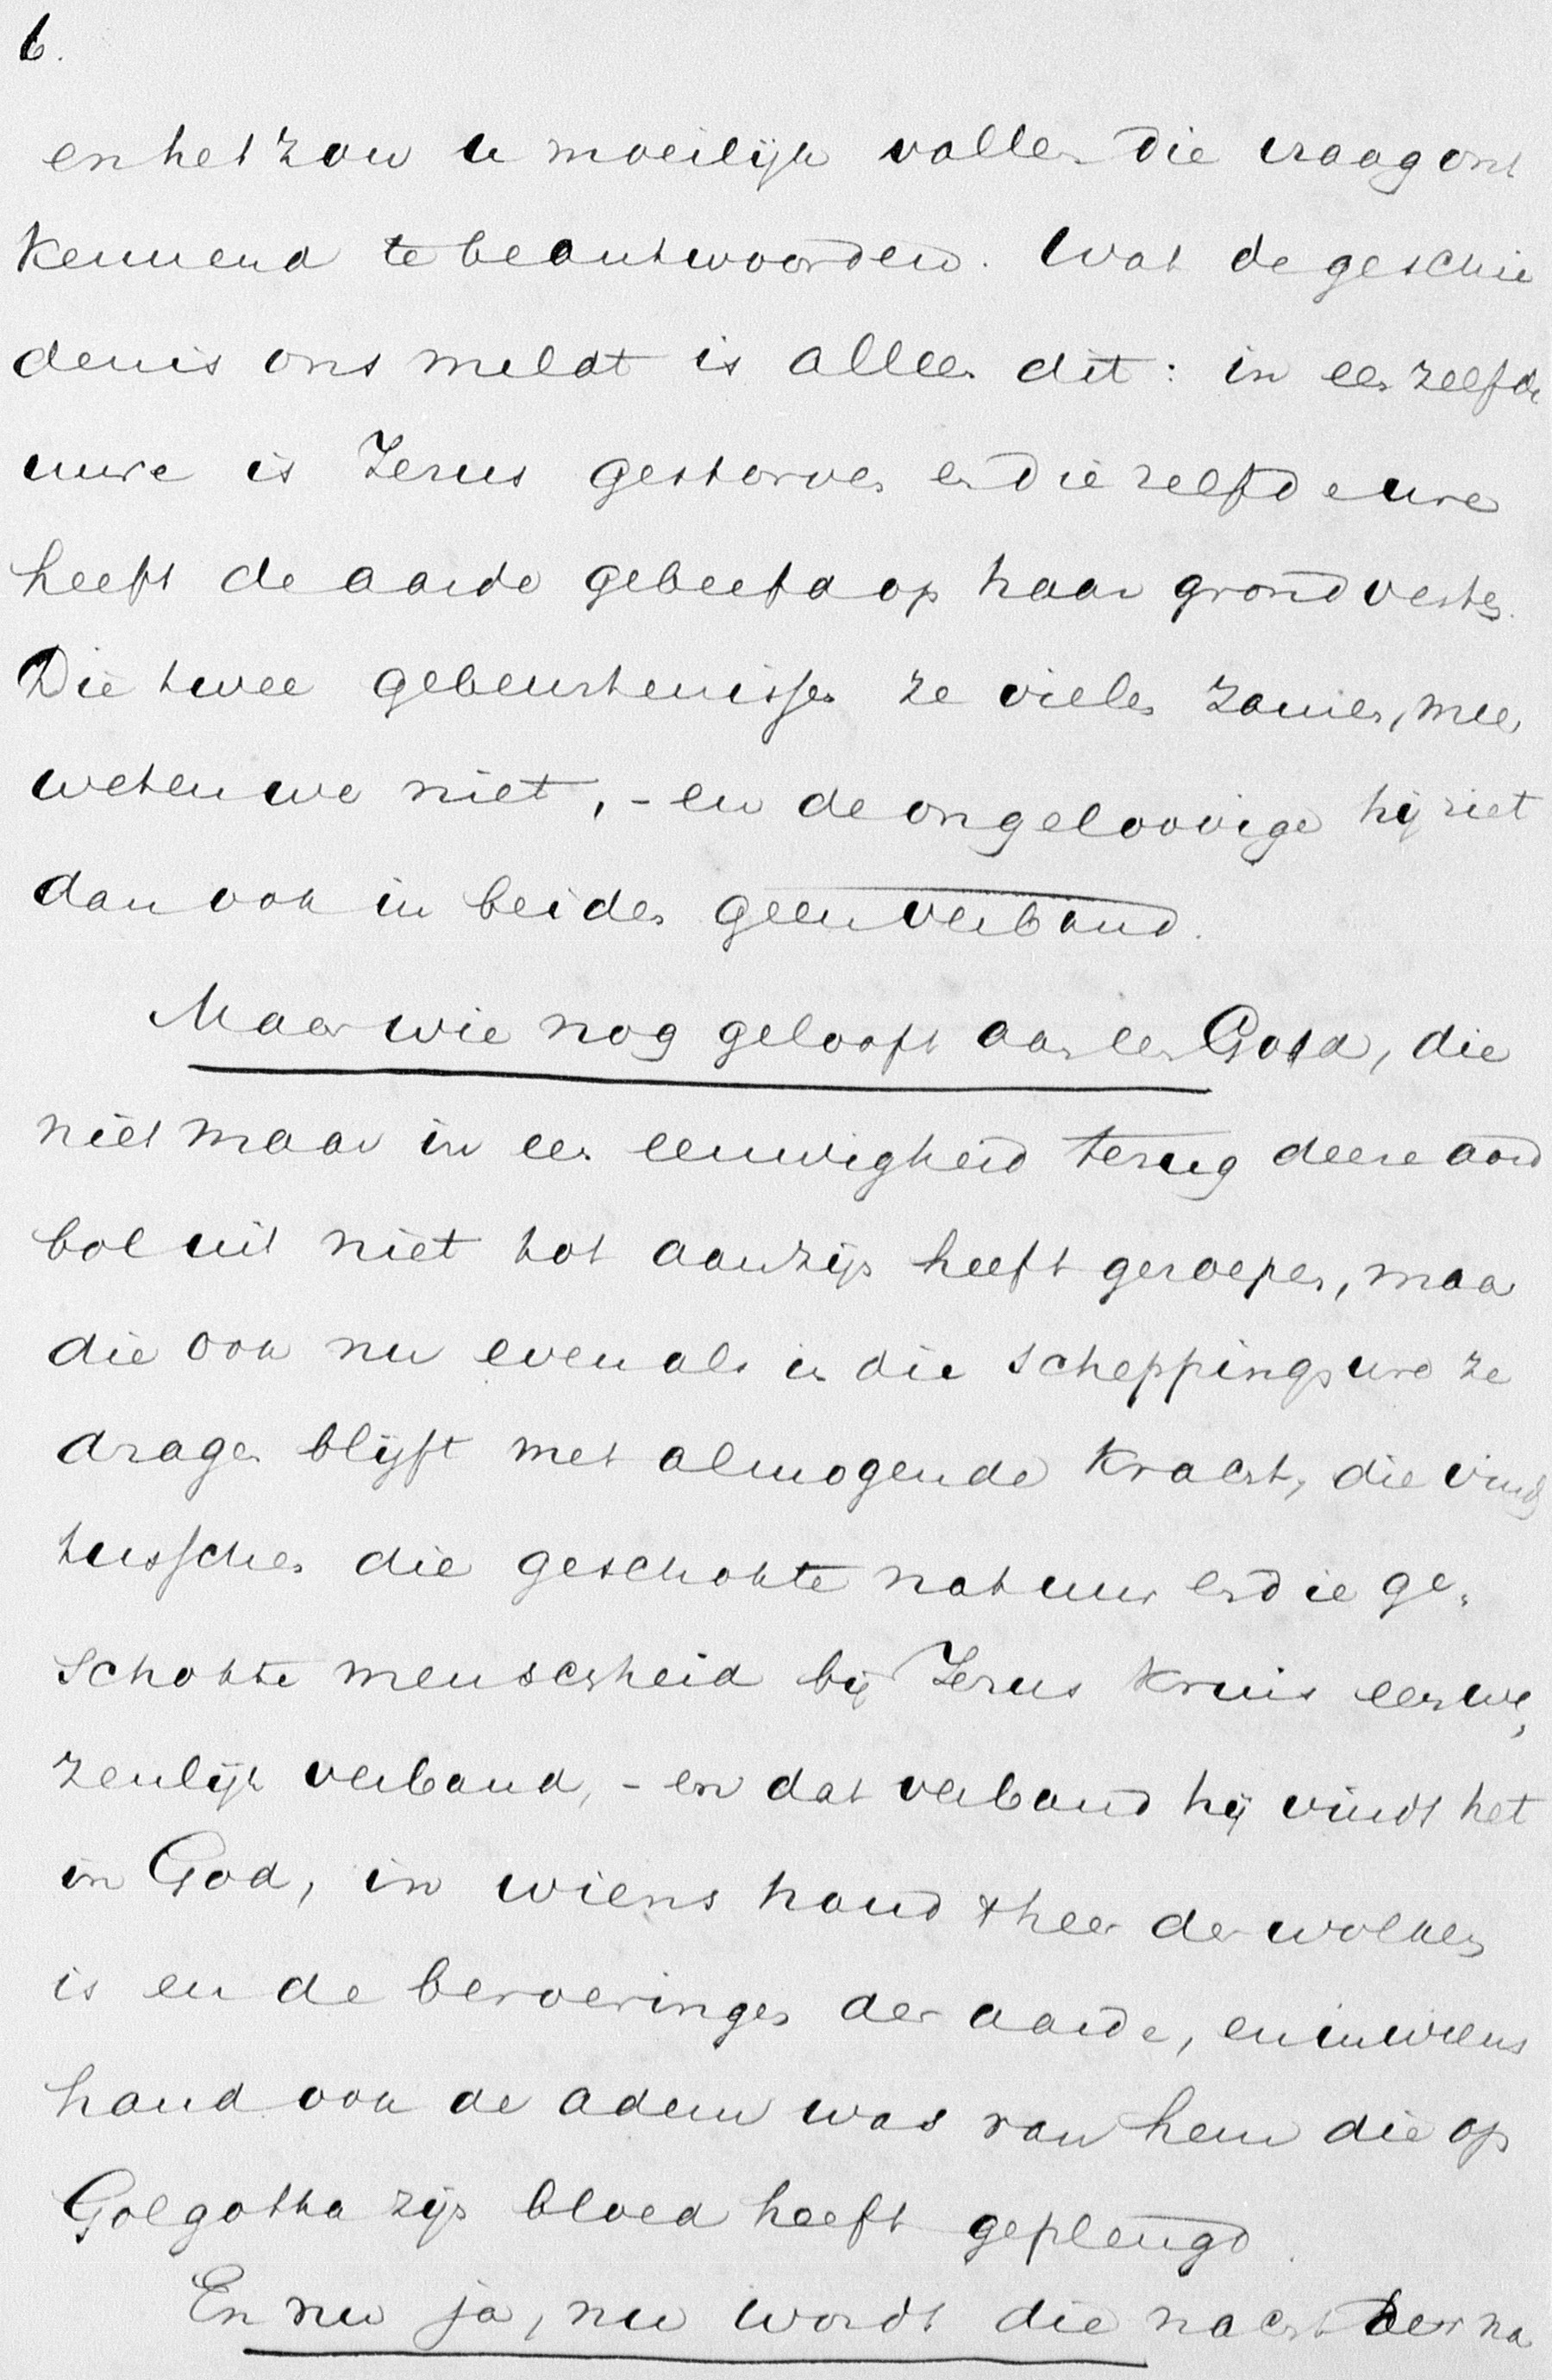 6.
en het zou u moeilijk vallen die vraag ont
kennend te beantwoorden. Wat de geschie
denis ons meldt is alleen dit: in eenzelfde
uure is Jezus gestorven en diezelfde ure
heeft de aarde gebeefd op haar grondvesten.
Die twee gebeurtenissen ze vielen zamen, meer
weten we niet, - en de ongeloovige hij ziet
dan ook in beiden geen verband.
Maar wie nog gelooft aan een God, die
niet maar in een eeuwigheid terug deze aard
bol uit niet tot aanzijn heeft geroepen, maar
die ook nu even als in die scheppingsure ze
dragen blijft met almogende kracht, die vindt
tusschen die geschokte natuur en die ge-
schokte menscheid bij Jezus kruis een we,
zenlijk verband, - en dat verband hij vindt het
in God, in wiens hand 't heer der wolken
is en de beroeringen der aarde, en in wiens
hand ook de adem was van hem die op
Golgotha zijn bloed heeft geplengd.
En nu ja, nu wordt die nacht der na